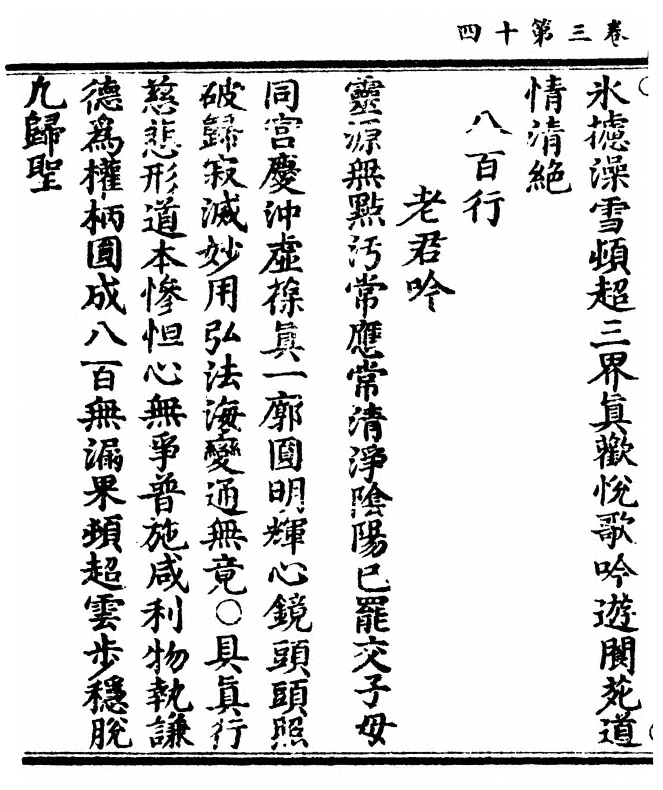 卷三第十四
氷㩀澡雪頻超三界眞歡悅歌吟遊閬苑道
情清絶
八百行
老君吟
靈源無點汚常應常清淨陰陽已罷交子母
同宫慶沖虛葆眞一廓圓明輝心鏡頭頭照
破歸寂滅妙用弘法海變通無竟○具眞行
慈悲形道本慘怛心無爭普施咸利物執謙
德爲權柄圓成八百無漏果頻超雲步穩脫
凢歸聖